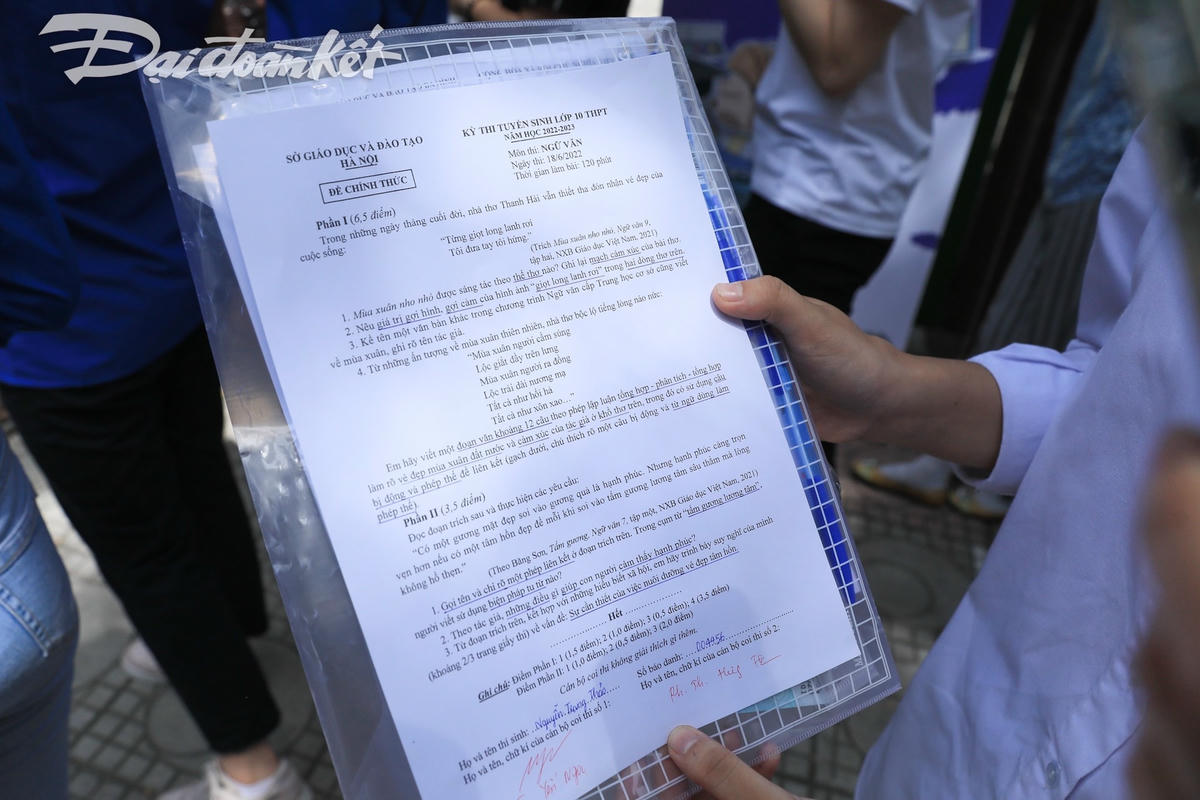 Đại đoàn kết
SỞ GIÁO DỤC VÀ ĐÀO TẠO
HÀ NỘI
ĐỀ CHÍNH THỨC
KỲ THI TUYỂN SINH LỚP 10 THPT
NĂM HỌC 2022-2023
Môn thi: NGỮ VĂN
Ngày thi: 18/6/2022
Thời gian làm bài: 120 phút
Phần I (6,5 điểm)
Trong những ngày tháng cuối đời, nhà thơ Thanh Hải vẫn thiết tha đón nhận vẻ đẹp của
cuộc sống:
“Từng giọt long lanh rơi
Tôi đưa tay tôi hứng.”
(Trích Mùa xuân nho nhỏ, Ngữ văn 9,
tập hai, NXB Giáo dục Việt Nam, 2021)
1. Mùa xuân nho nhỏ được sáng tác theo thể thơ nào? Ghi lại mạch cảm xúc của bài thơ.
2. Nêu giá trị gợi hình, gợi cảm của hình ảnh “giọt long lanh rơi” trong hai dòng thơ trên.
3. Kể tên một văn bản khác trong chương trình Ngữ văn cấp Trung học cơ sở cũng viết
về mùa xuân, ghi rõ tên tác giả.
4. Từ những ấn tượng về mùa xuân thiên nhiên, nhà thơ bộc lộ tiếng lòng náo nức:
“Mùa xuân người cầm súng
Lộc giắt đầy trên lưng
Mùa xuân người ra đồng
Lộc trải dài nương mạ
Tất cả như hối hả
Tất cả như xôn xao...”
Em hãy viết một đoạn văn khoảng 12 câu theo phép lập luận tổng hợp - phân tích - tổng hợp
làm rõ vẻ đẹp mùa xuân đất nước và cảm xúc của tác giả ở khổ thơ trên, trong đó có sử dụng câu
bị động và phép thế để liên kết (gạch dưới, chú thích rõ một câu bị động và từ ngữ dùng làm
phép thế).
Phần II (3,5 điểm)
Đọc đoạn trích sau và thực hiện các yêu cầu:
“Có một gương mặt đẹp soi vào gương quả là hạnh phúc. Nhưng hạnh phúc càng trọn
vẹn hơn nếu có một tâm hồn đẹp để mỗi khi soi vào tấm gương lương tâm sâu thẳm mà lòng
không hổ thẹn.”
(Theo Băng Sơn, Tấm gương, Ngữ văn 7, tập một, NXB Giáo dục Việt Nam, 2021)
1. Gọi tên và chỉ rõ một phép liên kết ở đoạn trích trên. Trong cụm từ “tấm gương lương tâm”,
người viết sử dụng biện pháp tu từ nào?
2. Theo tác giả, những điều gì giúp con người cảm thấy hạnh phúc?
3. Từ đoạn trích trên, kết hợp với những hiểu biết xã hội, em hãy trình bày suy nghĩ của mình
(khoảng 2/3 trang giấy thi) về vấn đề: Sự cần thiết của việc nuôi dưỡng vẻ đẹp tâm hồn.
Hết
Ghi chú: Điểm Phần I: 1 (1,5 điểm); 2 (1,0 điểm); 3 (0,5 điểm); 4 (3,5 điểm)
Điểm Phần II: 1 (1,0 điểm); 2 (0,5 điểm); 3 (2,0 điểm)
Cán bộ coi thi không giải thích gì thêm.
Họ và tên thí sinh: Nguyễn Trang Thảo Số báo danh: 004956
Họ và tên, chữ kí của cán bộ coi thi số 1: Họ và tên, chữ kí của cán bộ coi thi số 2: